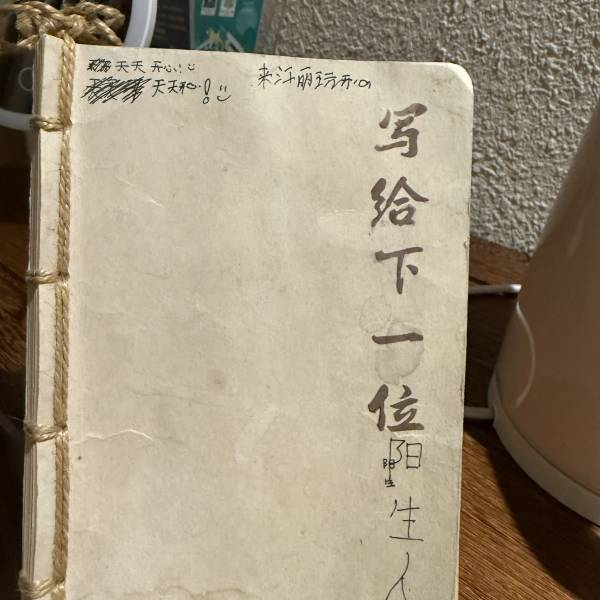 天天开心!
天天心!
来 丽玩开心
写给下一位
阳生人